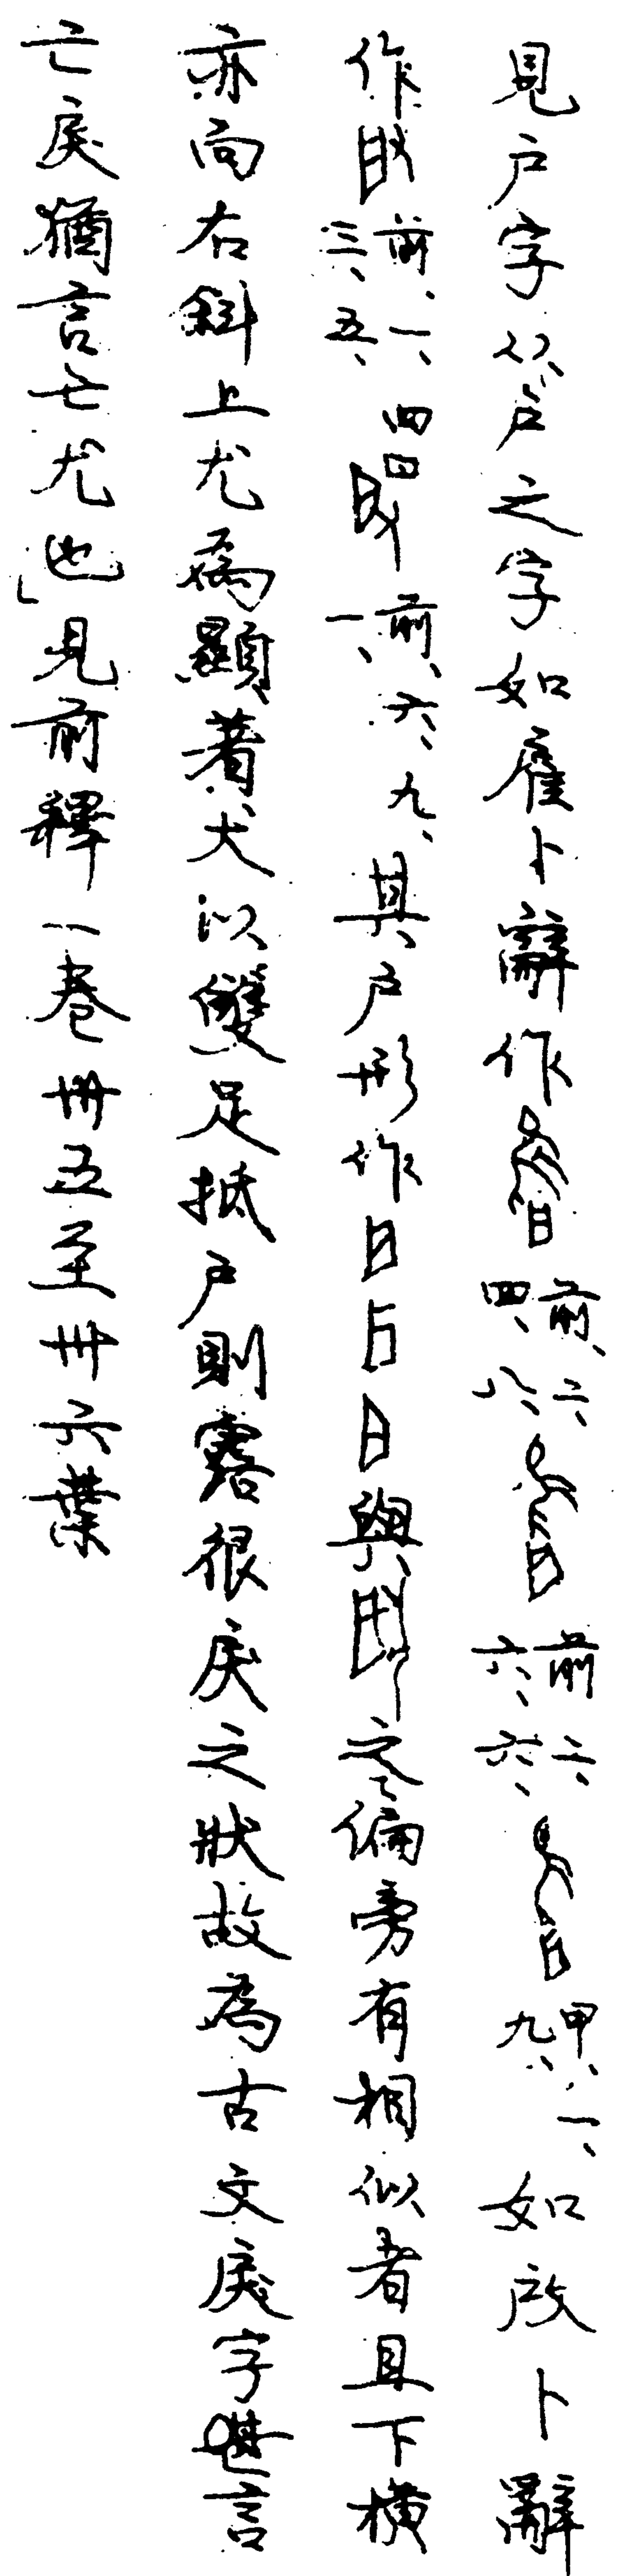 見戶字从戶之字如雇卜辭作前、二、四、八、前二、六、六、甲、一、九、如啟卜辭
作前、一、三、五、前、六、九、一、其戶形作與之偏旁有相似者且下橫
亦向右斜上尤為顯著犬以雙足抵戶則露很戾之狀故為古文戾字言
亡戾猶言亡尤也」見前釋一卷卅五至卅六葉